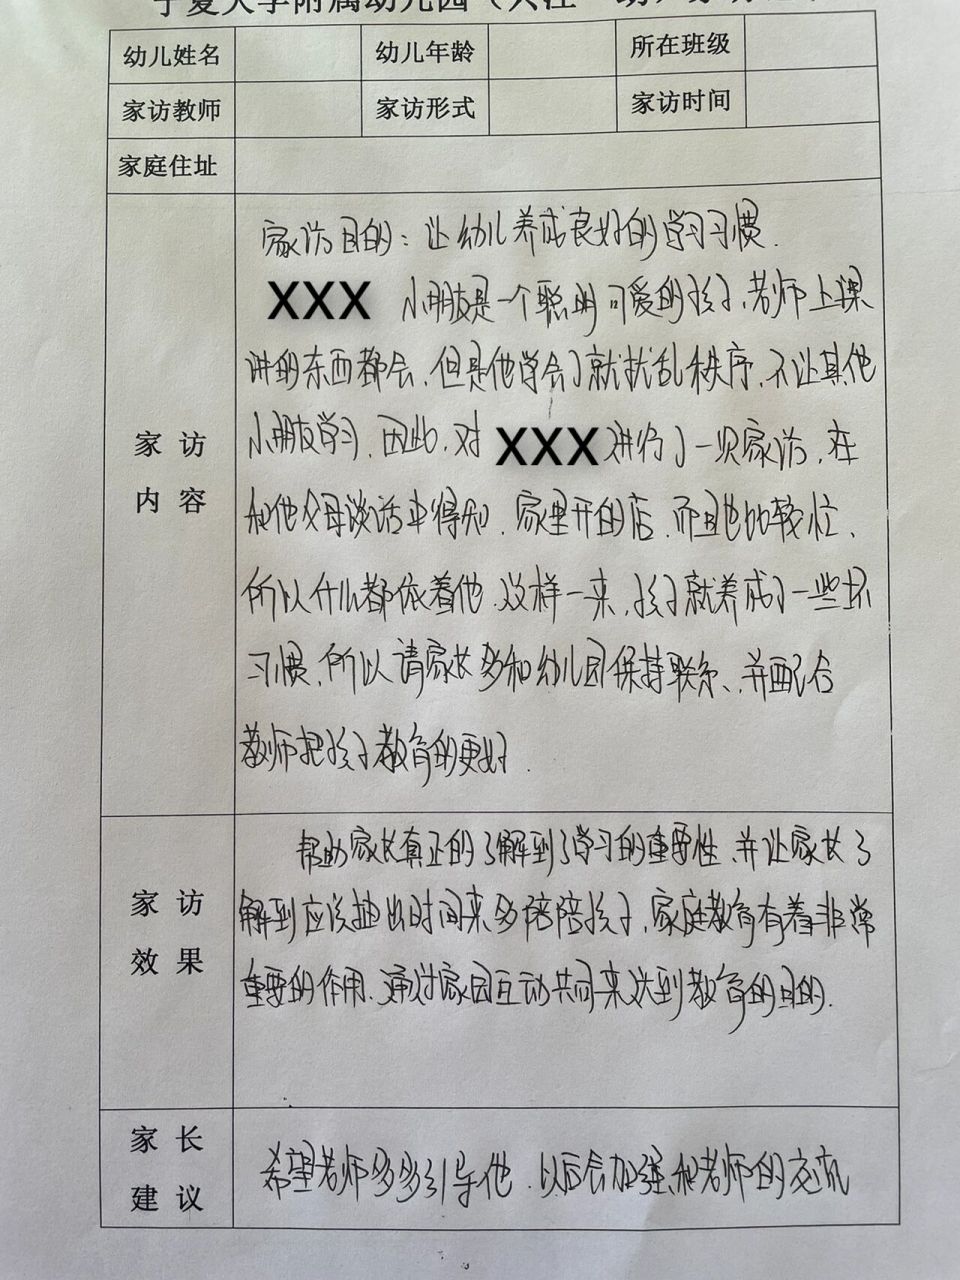 宁夏大学附属幼儿园
幼儿姓名 幼儿年龄 所在班级
家访教师 家访形式 家访时间
家庭住址
家访
内容
家访目的：让幼儿养成良好的学习习惯.
XXX 小朋友是一个聪明可爱的孩子,老师上课
讲的东西都会,但是他学会了就扰乱秩序,不让其他
小朋友学习,因此,对 XXX 进行了一次家访,在
和他父母谈话中得知,家里开的店,而且也比较忙,
所以什么都依着他,这样一来,孩子就养成了一些坏
习惯,所以请家长多和幼儿园保持联系、并配合
教师把孩子教育的更好.
家访
效果
帮助家长真正的了解到了学习的重要性,并让家长了
解到应该抽出时间来多陪陪孩子,家庭教育有着非常
重要的作用,通过家园互动共同来达到教育的目的.
家长
建议
希望老师多多引导他,以后会加强和老师的交流